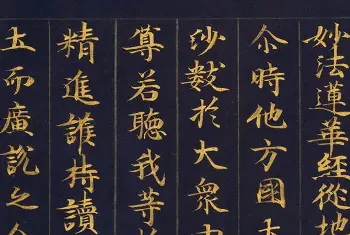 妙法蓮華經從地
尒時他方國
沙數於大衆
尊若聽我等
精進誰持讀
土而廣說之